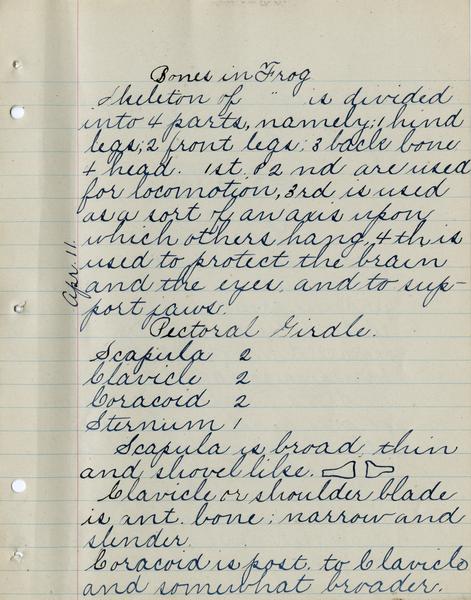 Bones in Frog
Skeleton of " is divided
into 4 parts, namely; 1 hind
legs; 2 front legs; 3 back bone
4 head. 1st & 2nd are used
for locomotion, 3rd is used
as a sort of an axis upon
which others hang, 4th is
used to protect the brain
and the eyes, and to sup-
port jaws.
Apr. 11.
Pectoral Girdle.
Scapula 2
Clavicle 2
Coracoid 2
Sternum 1
Scapula is broad, thin
and shovel like.
Clavicle or shoulder blade
is ant. bone; narrow and
slender.
Coracoid is post. to Clavicle
and somewhat broader.